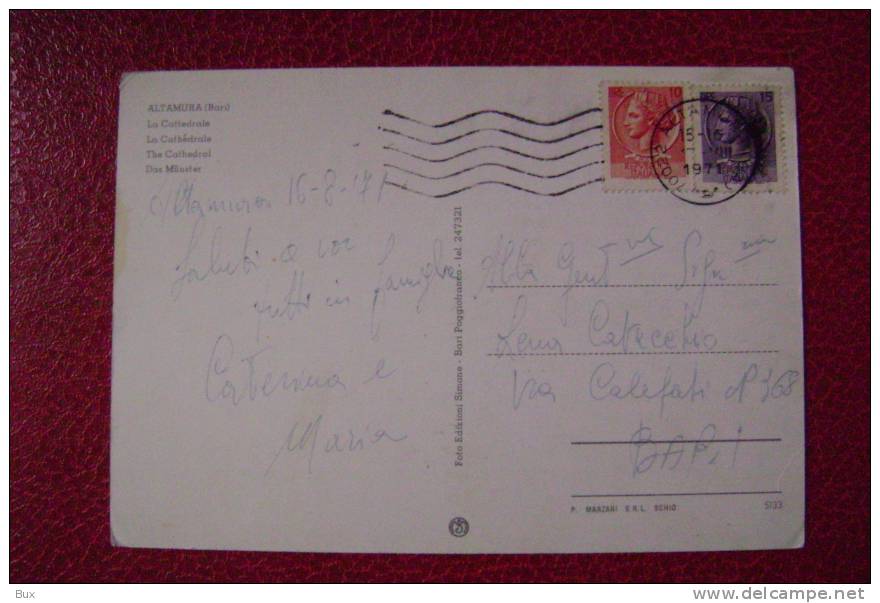 ALTAMURA (Bari)
La Cattedrale
La Cathédrale
The Cathedral
Das Münster
10
15
1971
Altamura 16-8-71
Saluti a voi
tutti in famiglia
Caterina e
Maria
Foto Edizioni Simone - Bari Poggiofranco - tel. 247321
Alla Gent Sign
Lena
Via Calefati N 368
BARI
P. MARZARI S.R.L. SCHIO
5133
Bux
www.delcampe.net